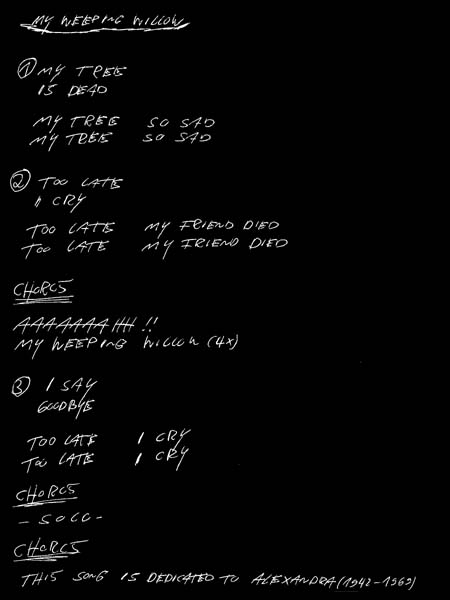 MY WEEPING WILLOW
① MY TREE
IS DEAD
MY TREE SO SAD
MY TREE SO SAD
② TOO LATE
I CRY
TOO LATE MY FRIEND DIED
TOO LATE MY FRIEND DIED
CHORUS
AAAAAAAHH!!
MY WEEPING WILLOW (4x)
③ I SAY
GOODBYE
TOO LATE I CRY
TOO LATE I CRY
CHORUS
- SOLO -
CHORUS
THIS SONG IS DEDICATED TO ALEXANDRA (1942-1969)